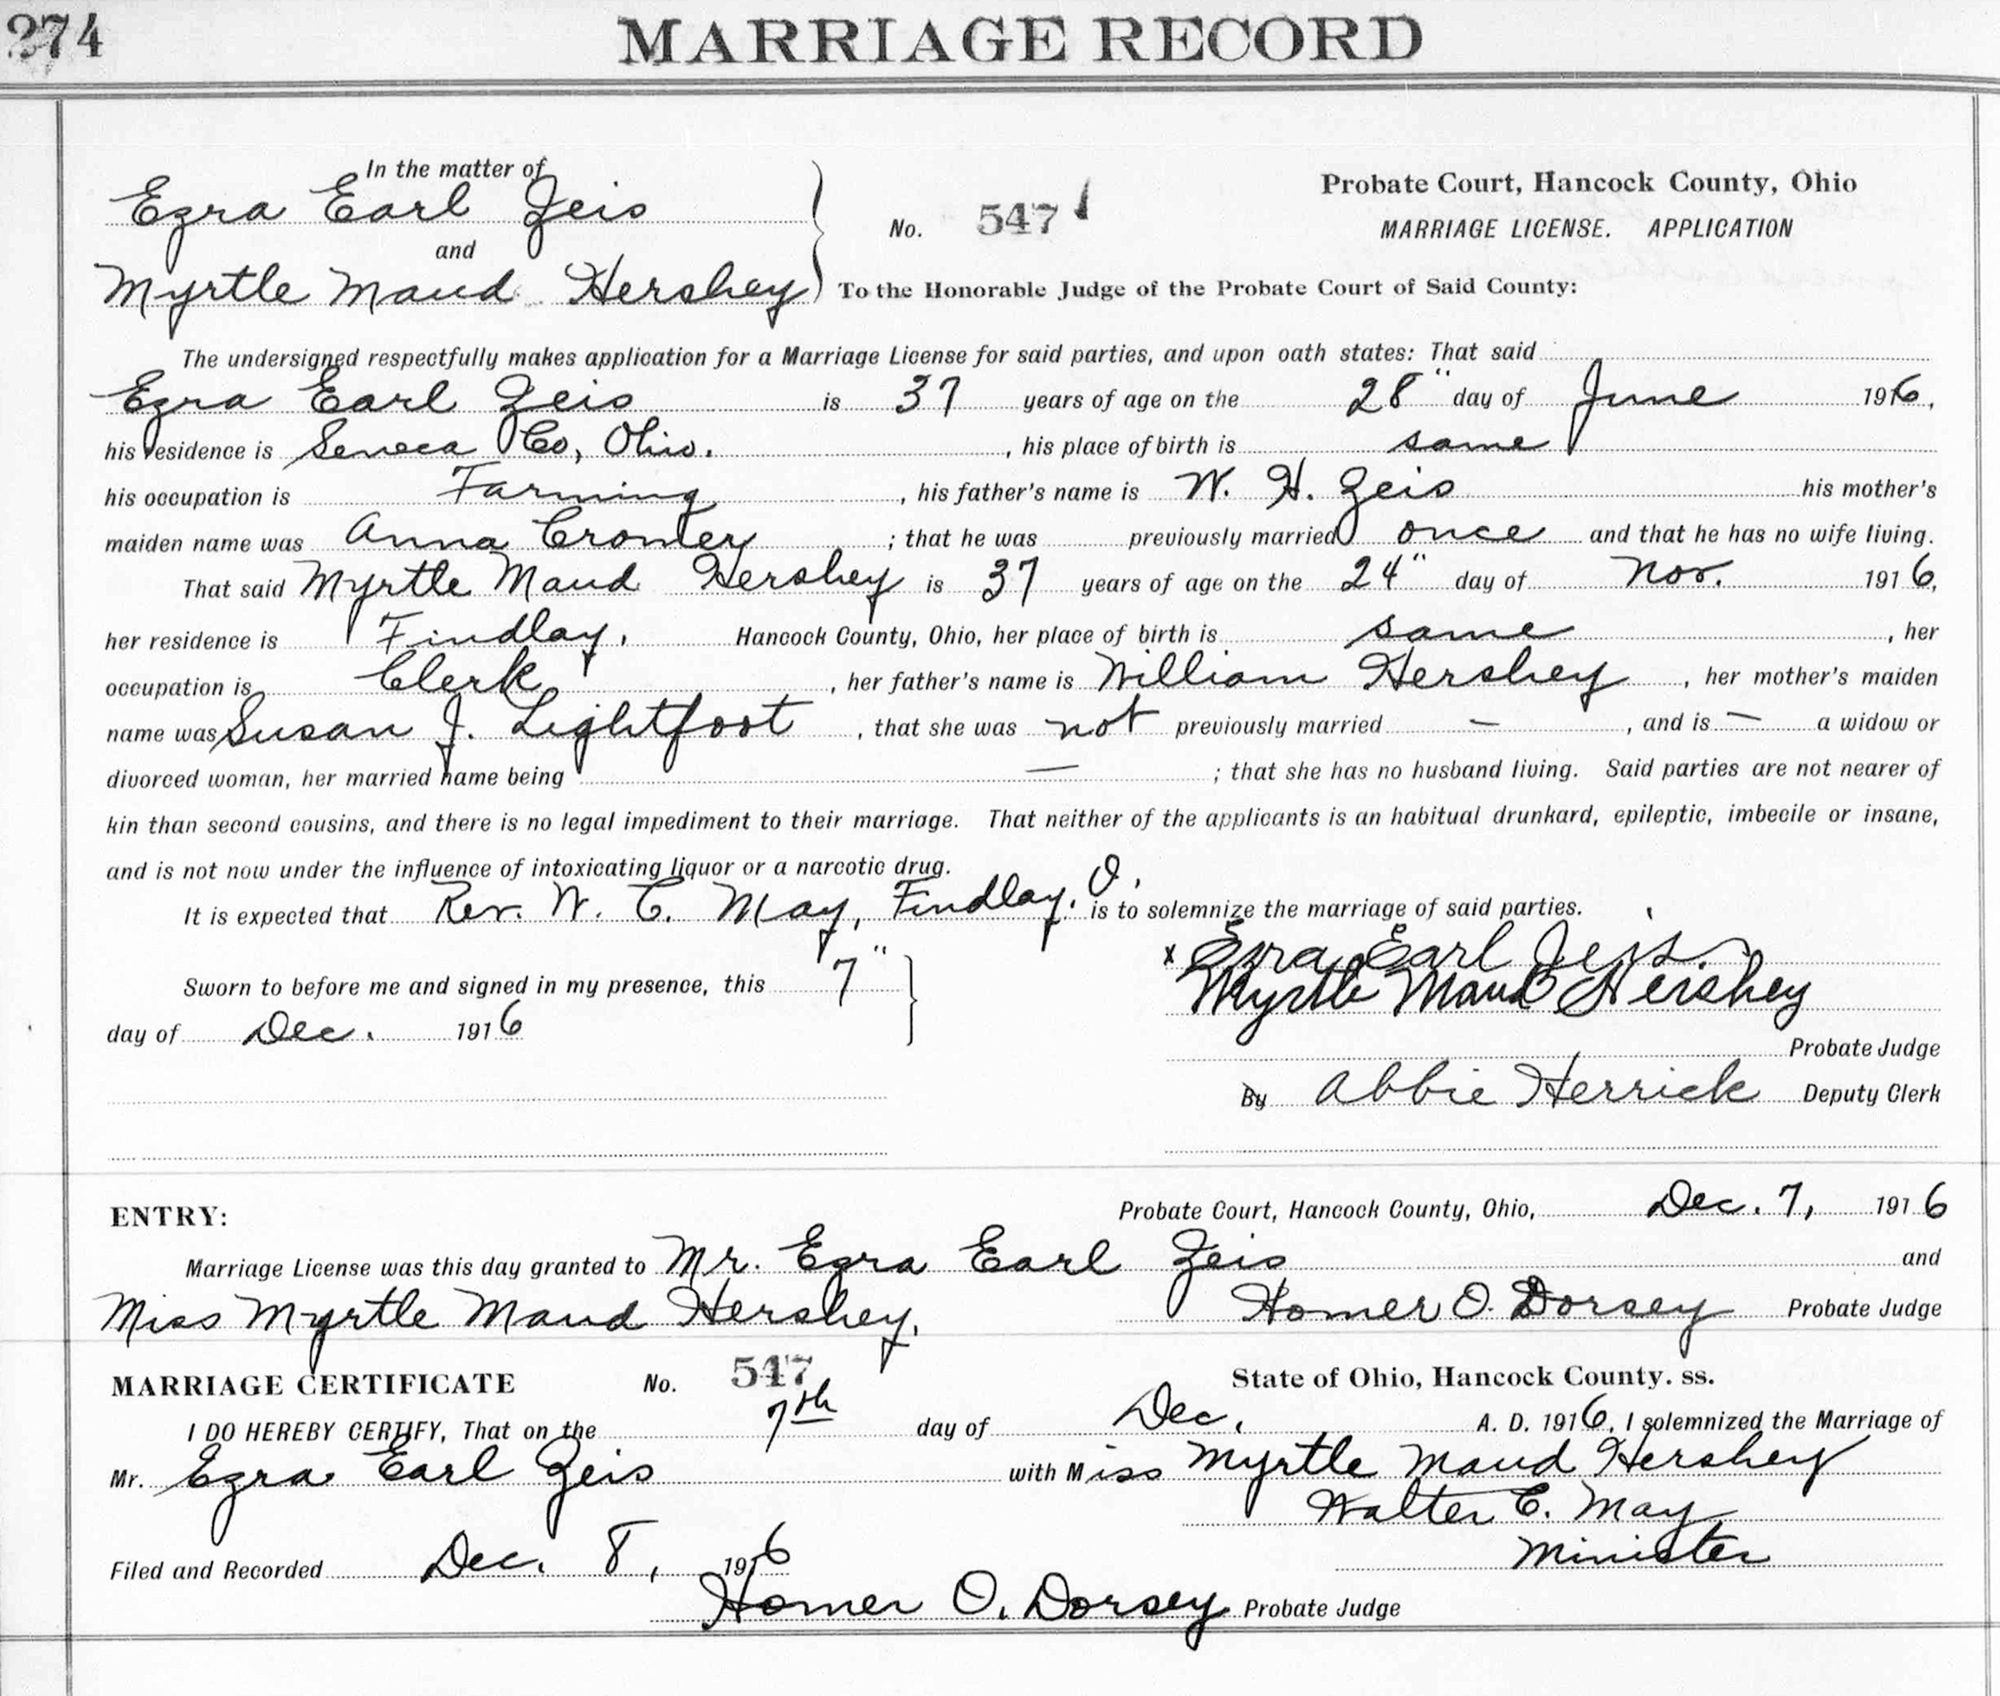 274
MARRIAGE RECORD
In the matter of
Ezra Earl Zeis
and
Myrtle Maud Hershey
No. 547
Probate Court, Hancock County, Ohio
MARRIAGE LICENSE. APPLICATION
To the Honorable Judge of the Probate Court of Said County:
The undersigned respectfully makes application for a Marriage License for said parties, and upon oath states: That said
Ezra Earl Zeis is 37 years of age on the 28" day of June 1916,
his residence is Seneca Co, Ohio. , his place of birth is same
his occupation is Farming , his father's name is W. H. Zeis his mother's
maiden name was Anna Cromer ; that he was previously married once and that he has no wife living.
That said Myrtle Maud Hershey is 37 years of age on the 24" day of Nov. 1916,
her residence is Findlay, Hancock County, Ohio, her place of birth is same , her
occupation is Clerk , her father's name is William Hershey , her mother's maiden
name was Susan J. Lightfoot , that she was not previously married — , and is — a widow or
divorced woman, her married name being — ; that she has no husband living. Said parties are not nearer of
kin than second cousins, and there is no legal impediment to their marriage. That neither of the applicants is an habitual drunkard, epileptic, imbecile or insane,
and is not now under the influence of intoxicating liquor or a narcotic drug.
It is expected that Rev. W. C. May, Findlay, O. is to solemnize the marriage of said parties.
x Ezra Earl Zeis.
Myrtle Maud Hershey
Sworn to before me and signed in my presence, this 7"
day of Dec. 1916
Probate Judge
By Abbie Herrick Deputy Clerk
ENTRY:
Probate Court, Hancock County, Ohio, Dec. 7, 1916
Marriage License was this day granted to Mr. Ezra Earl Zeis and
Miss Myrtle Maud Hershey. Homer O. Dorsey Probate Judge
MARRIAGE CERTIFICATE No. 547 State of Ohio, Hancock County. ss.
I DO HEREBY CERTIFY, That on the 7th day of Dec. A. D. 1916, I solemnized the Marriage of
Mr. Ezra Earl Zeis with Miss Myrtle Maud Hershey
Walter C. May
Minister
Filed and Recorded Dec. 8, 1916
Homer O. Dorsey Probate Judge